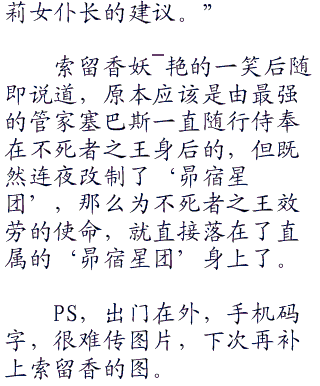 莉女仆长的建议。”
索留香妖¯艳的一笑后随
即说道，原本应该是由最强
的管家塞巴斯一直随行侍奉
在不死者之王身后的，但既
然连夜改制了‘昴宿星
团’，那么为不死者之王效
劳的使命，就直接落在了直
属的‘昴宿星团’身上了。
PS，出门在外，手机码
字，很难传图片，下次再补
上索留香的图。